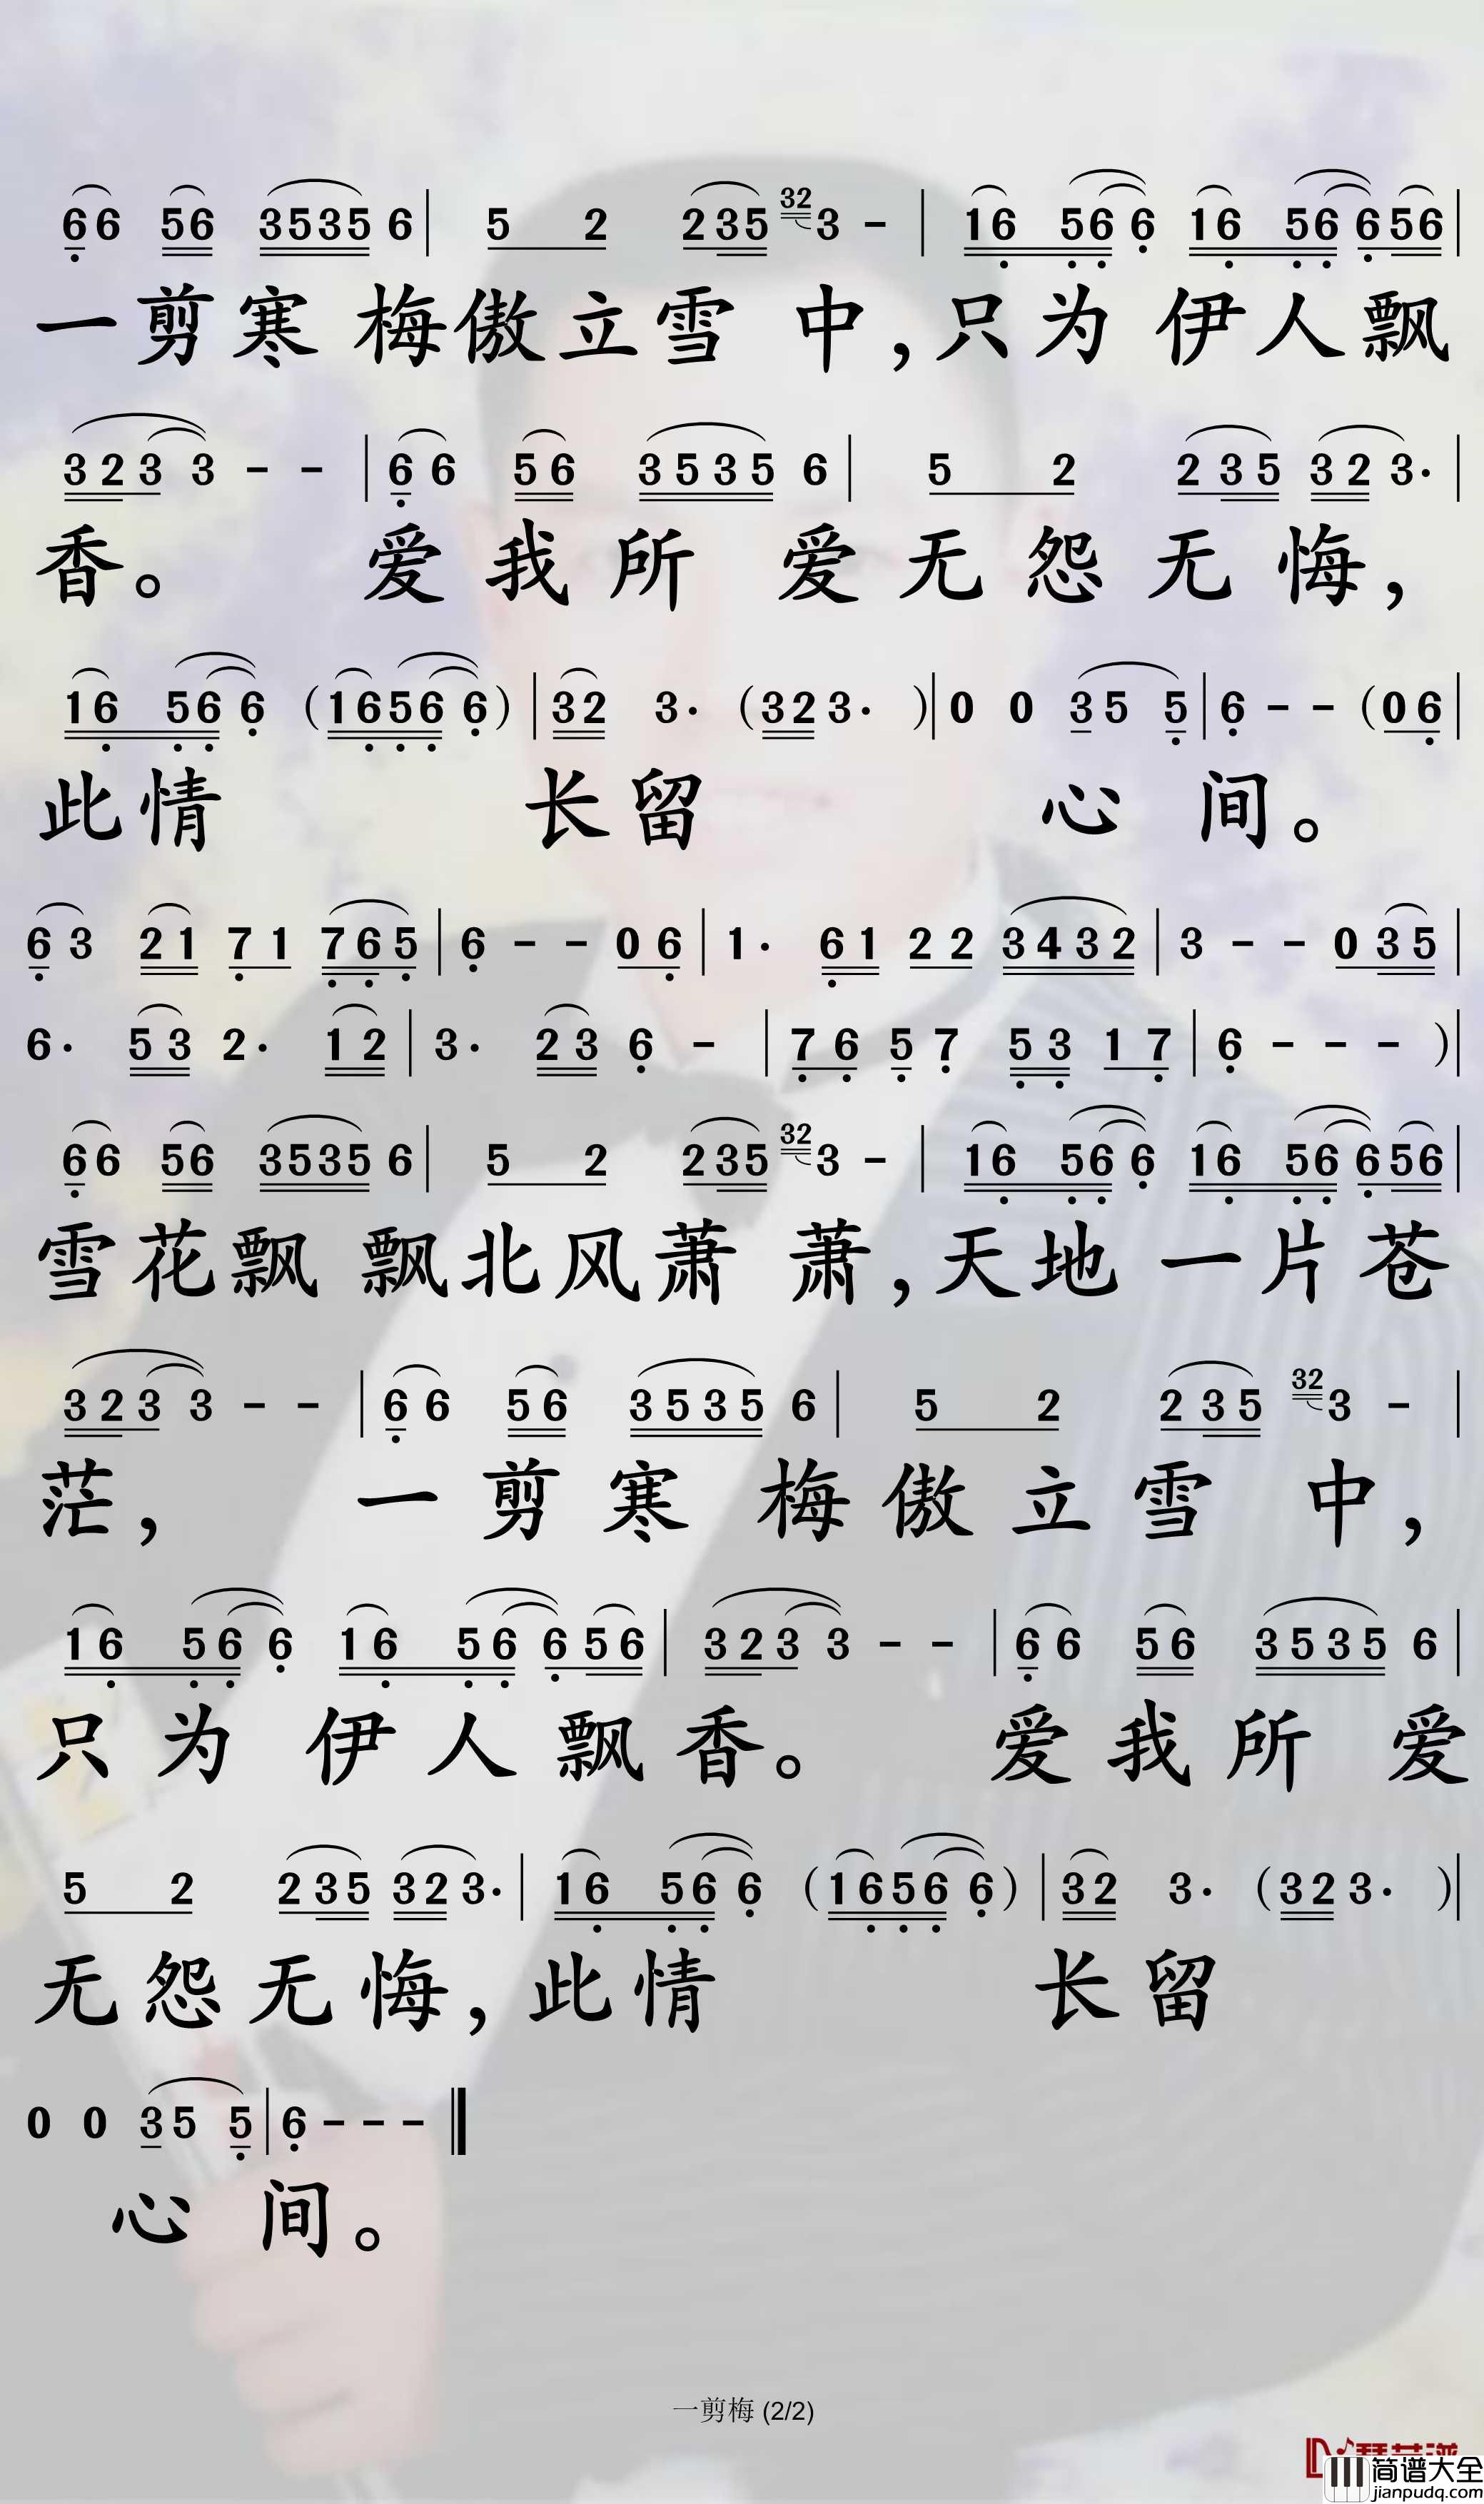 6 6 5 6 3 5 3 5 6 | 5 2 2 3 5 32 3 - | 1 6 5 6 6 1 6 5 6 6 5 6 |
一剪寒梅傲立雪中,只为伊人飘
3 2 3 3 - - | 6 6 5 6 3 5 3 5 6 | 5 2 2 3 5 3 2 3· |
香。爱我所爱无怨无悔,
1 6 5 6 6 (1 6 5 6 6) | 3 2 3· (3 2 3· ) | 0 0 3 5 5 | 6 - - (0 6 |
此情长留心间。
6 3 2 1 7 1 7 6 5 | 6 - - 0 6 | 1· 6 1 2 2 3 4 3 2 | 3 - - 0 3 5 |
6· 5 3 2· 1 2 | 3· 2 3 6 - | 7 6 5 7 5 3 1 7 | 6 - - - ) |
6 6 5 6 3 5 3 5 6 | 5 2 2 3 5 32 3 - | 1 6 5 6 6 1 6 5 6 6 5 6 |
雪花飘飘北风萧萧,天地一片苍
3 2 3 3 - - | 6 6 5 6 3 5 3 5 6 | 5 2 2 3 5 32 3 - |
茫,一剪寒梅傲立雪中,
1 6 5 6 6 1 6 5 6 6 5 6 | 3 2 3 3 - - | 6 6 5 6 3 5 3 5 6 |
只为伊人飘香。爱我所爱
5 2 2 3 5 3 2 3· | 1 6 5 6 6 (1 6 5 6 6) | 3 2 3· (3 2 3· ) |
无怨无悔,此情长留
0 0 3 5 5 | 6 - - - ‖
心间。
一剪梅 (2/2)
简谱大全
jianpudq.com